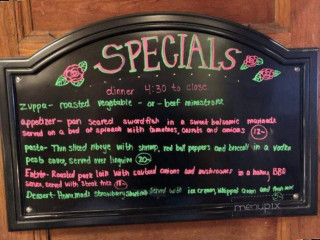 SPECIALS
dinner 4:30 to close
zuppa - roasted vegetable - or - beef minestrone
appetizer - pan seared swordfish in a sweet balsamic marinade
served on a bed of spinach with tomatoes, carrots and onions 12-
pasta - Thin sliced ribeye with shrimp, red bell peppers and broccoli in a vodka
pesto sauce, served over linguine 20-
Entrée - Roasted pork loin with sauteed onions and mushrooms in a honey BBQ
sauce, served with steak fries 18-
Dessert - Homemade Strawberry served with ice cream, whipped cream and
menupix